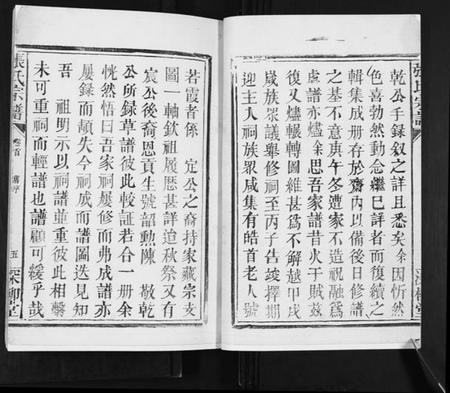 乾公手録叙之詳且悉矣余因忻然
色喜勃然動念繼巳詳者而復續之
輯集成册存於齋內以備後日修譜
之基不意庚午冬遭家不造祝融為
虐譜亦燼余思吾家譜昔火于賊兹
復又燼輾轉圖維甚為不解越甲戌
歲族眾議舉修祠至丙子告竣擇期
迎主入祠族眾咸集有皓首老人號
張氏宗譜
若霞者係 定公之裔持家藏宗支
圖一軸欽祖履歷甚詳迨秋祭又有
宸公後裔恩貢生號韶勲陳 敬乾
公所録草譜彼此較証若合一册余
恍然悟曰吾家祠屢修而弗成譜亦
屢録而頻失今祠成而譜圖迭見知
吾 祖明示以祠譜並重彼此相繫
未可重祠而輕譜也譜顧可緩乎哉
張氏宗譜
卷首
舊序
五